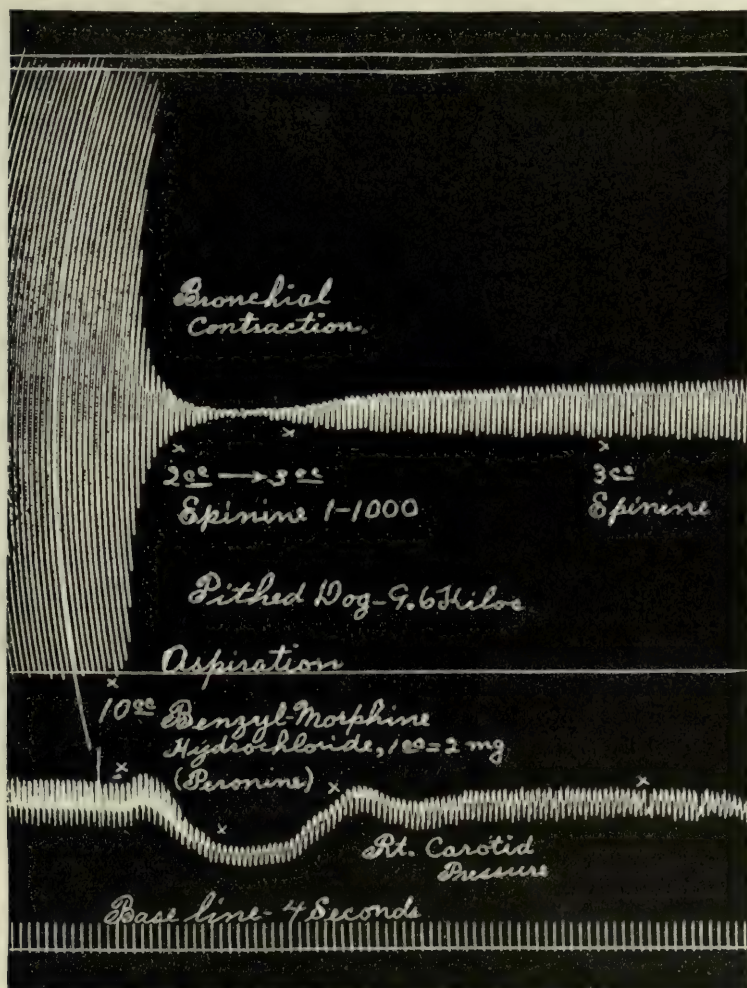 Bronchial
Contraction.
2cc → 3cc
Epinine 1-1000
3cc
Epinine
Pithed Dog-9.6 Kilos
Aspiration
10cc Benzyl-Morphine
Hydrochloride, 1cc=2 mg
(Peronine)
Rt. Carotid
Pressure
Base line- 4 Seconds